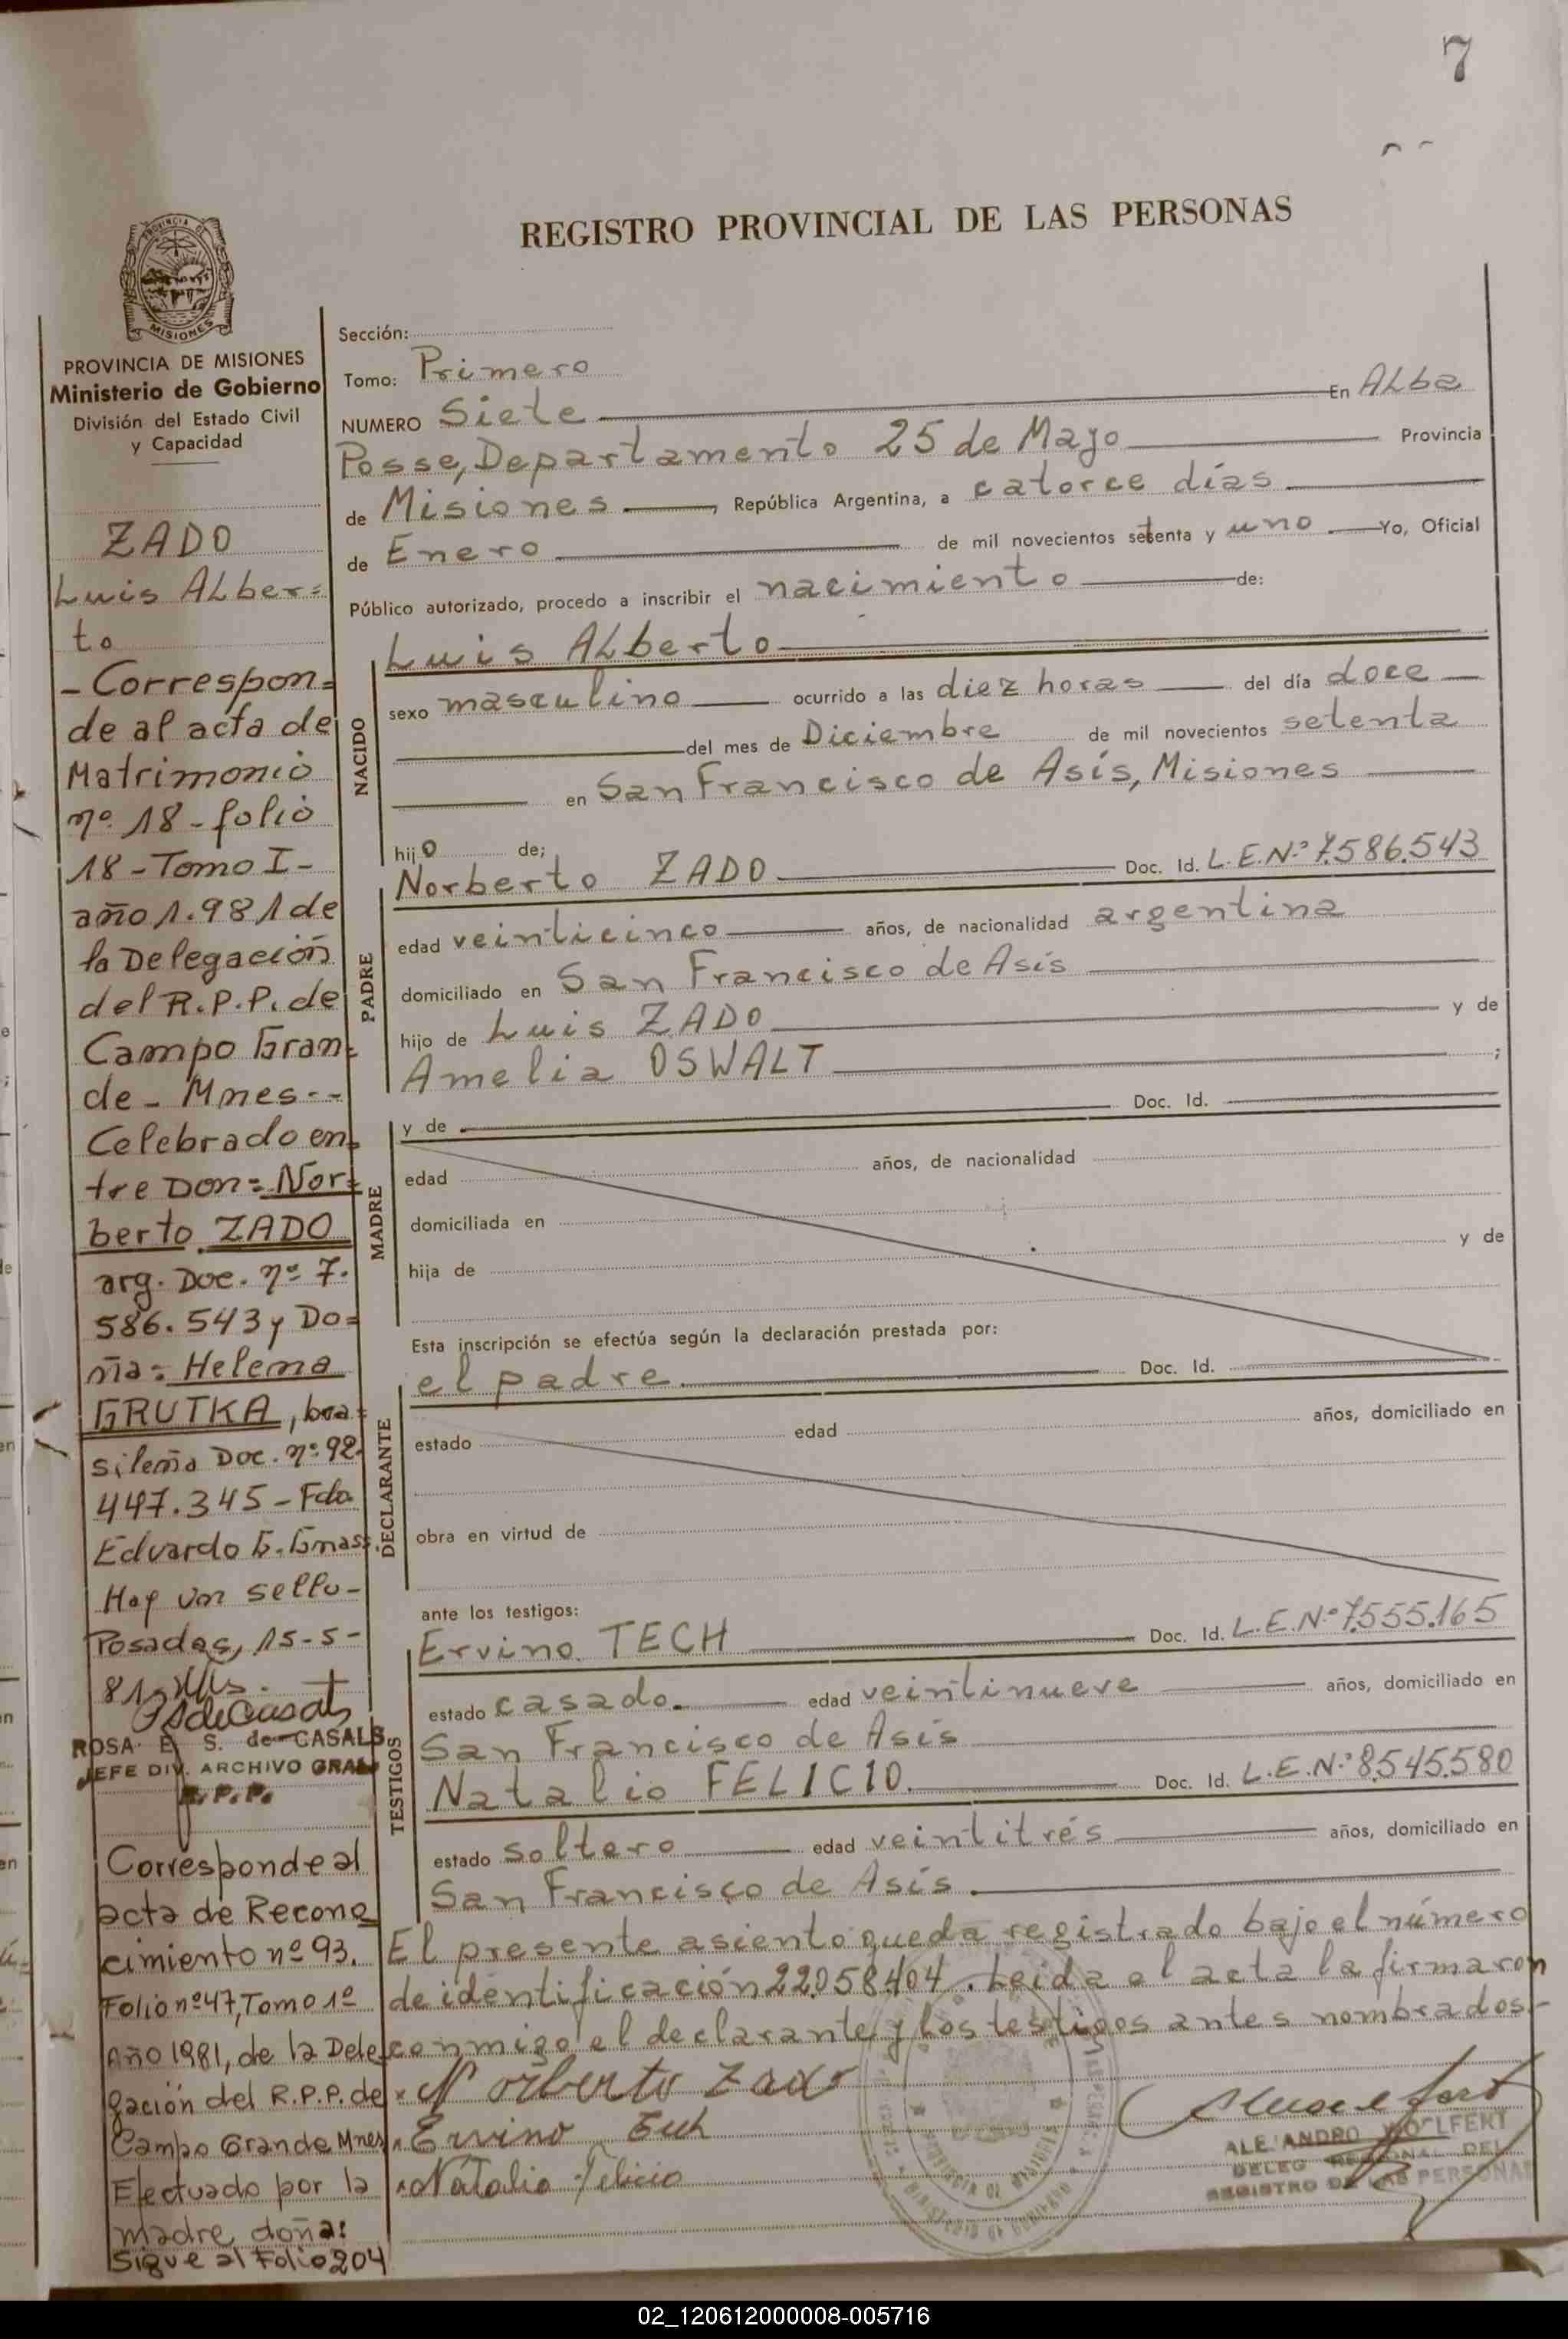 7
REGISTRO PROVINCIAL DE LAS PERSONAS
PROVINCIA DE MISIONES
Ministerio de Gobierno
División del Estado Civil
y Capacidad
ZADO
Luis ALber=
to
- Correspon=
de al acta de
Matrimonio
nº 18 - folio
18 - Tomo I -
año 1.981 de
la Delegación
del R.P.P. de
Campo Gran=
de - Mnes --
Celebrado en=
tre Don = Nor=
berto ZADO
arg. Doc. nº 7.
586.543 y Do=
ña = Helena
GRUTKA, bra=
sileña Doc. nº 92.
447.345 - Fdo.
Eduardo G.
Hay un sello -
Posadas, 15-5-
81
ROSA E. S. de CASALS
JEFE DIV. ARCHIVO GRAL
R.P.P.
Corresponde al
acta de Recono=
cimiento nº 93.
Folio nº 47, Tomo 1º
Año 1981, de la Dele=
gación del R.P.P. de
Campo Grande Mnes
Efectuado por la
madre doña:
Sigue al Folio 204
Sección:
Tomo: Primero
NUMERO Siete En ALba
Posse, Departamento 25 de Mayo Provincia
de Misiones, República Argentina, a catorce días
de Enero de mil novecientos setenta y uno Yo, Oficial
Público autorizado, procedo a inscribir el nacimiento de:
NACIDO
Luis ALberto
sexo masculino ocurrido a las diez horas del día doce
del mes de Diciembre de mil novecientos setenta
en San Francisco de Asís, Misiones
hijo de;
PADRE
Norberto ZADO Doc. Id. L.E.Nº 7.586.543
edad veinticinco años, de nacionalidad argentina
domiciliado en San Francisco de Asís
hijo de Luis ZADO y de
Amelia OSWALT ;
MADRE
y de Doc. Id.
edad años, de nacionalidad
domiciliada en
hija de y de
Esta inscripción se efectúa según la declaración prestada por:
DECLARANTE
el padre. Doc. Id.
estado edad años, domiciliado en
obra en virtud de
ante los testigos:
TESTIGOS
Ervino TECH Doc. Id. L.E.Nº 7.555.165
estado casado. edad veintinueve años, domiciliado en
San Francisco de Asís
Natalio FELICIO. Doc. Id. L.E.Nº 8.545.580
estado soltero edad veintitrés años, domiciliado en
San Francisco de Asís.
El presente asiento queda registrado bajo el número
de identificación 22.058.404. Leida el acta la firmaron
conmigo el declarante y los testigos antes nombrados.-
Norberto Zado
Ervino Tech
Natalio Felicio
ALEJANDRO WOLFERT
DELEG REGIONAL DEL
REGISTRO DE LAS PERSONAS
02_120612000008-005716